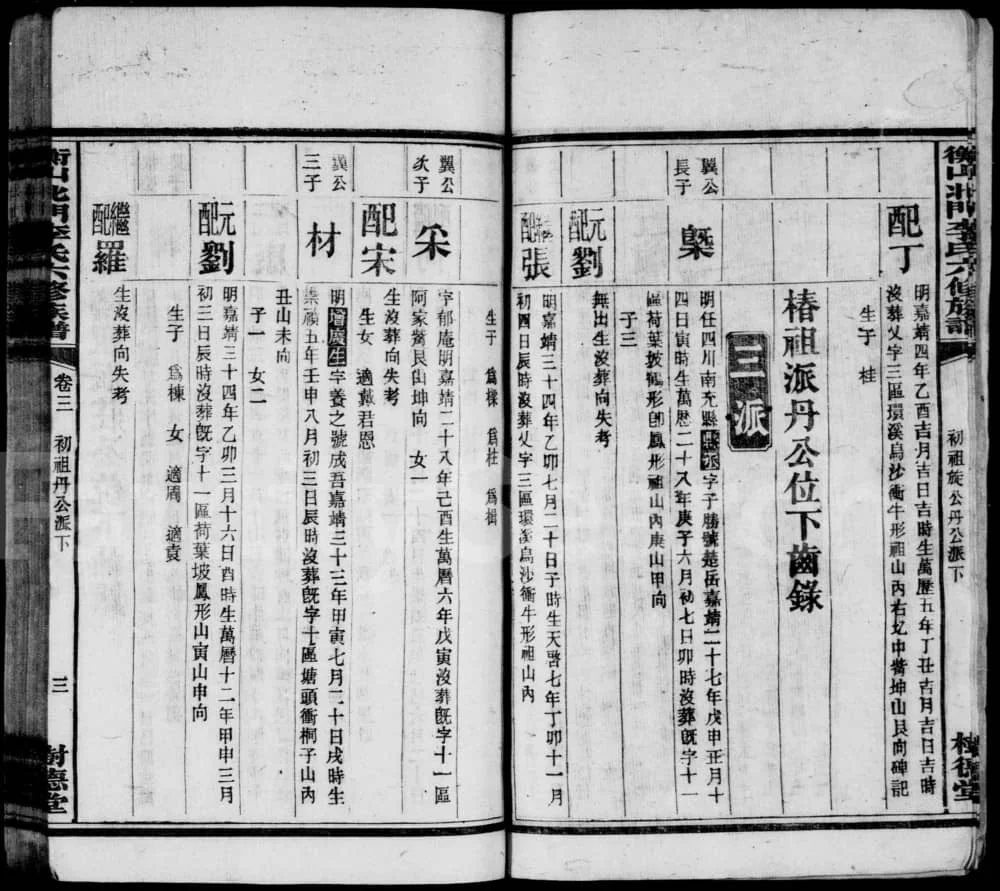 衡山北門李氏六修族譜
初祖旋公丹公派下
樹德堂
配丁
明嘉靖四年乙酉吉月吉日吉時生萬歷五年丁丑吉月吉日吉時
沒葬乂字三區環溪烏沙衝牛形祖山內右
坤山艮向碑記
生子 桂
椿祖派丹公位下齒錄
三派
翼公
長子
槩
明任四川南充縣
字子勝號楚岳嘉靖二十七年戊申正月十
四日寅時生萬歷二十八年庚子六月初七日卯時沒葬旣字十一
區荷葉坡鶴形卽鳳形祖山內庚山甲向
子三
元配劉
無出生沒葬向失考
繼配張
明嘉靖三十四年乙卯七月二十日子時生天啓七年丁卯十一月
初四日辰時沒葬乂字三區環溪烏沙衝牛形祖山內
生子 爲樑 爲柱 爲楫
翼公
次子
寀
字郁庵明嘉靖二十八年己酉生萬曆六年戊寅沒葬旣字十一區
阿家
艮山坤向 女一
配宋
生沒葬向失考
生女 適戴君恩
翼公
三子
材
明增廣生字養之號成吾嘉靖三十三年甲寅七月三十日戌時生
崇禎五年壬申八月初三日辰時沒葬旣字十區塘頭衝桐子山內
丑山未向
子一 女二
元配劉
明嘉靖三十四年乙卯三月十六日酉時生萬曆十二年甲申三月
初三日辰時沒葬旣字十一區荷葉坡鳳形山寅山申向
生子 爲棟 女 適周 適袁
繼配羅
生沒葬向失考
衡山北門李氏六修族譜
卷三
初祖丹公派下
三
樹德堂